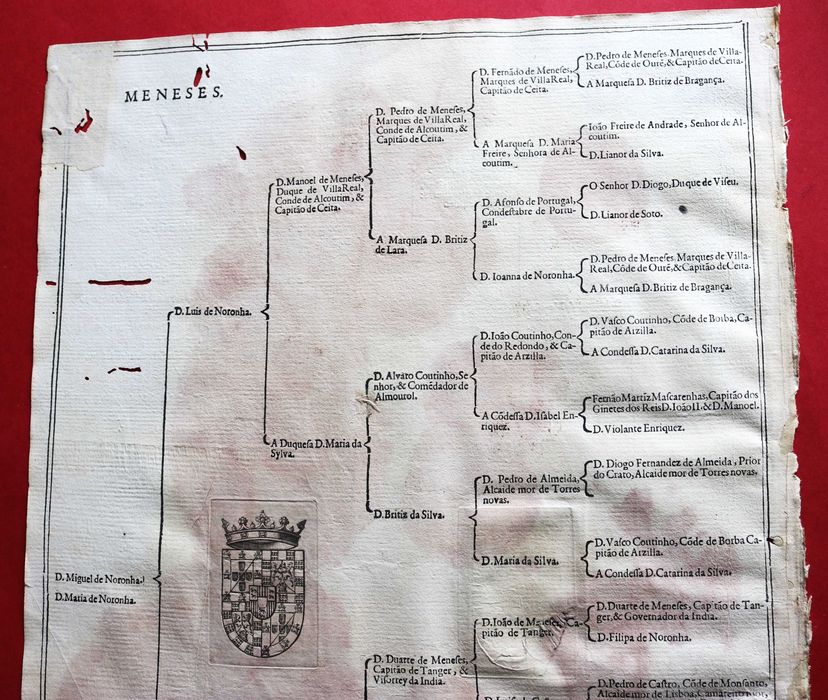 MENESES.
D. Miguel de Noronha.
D. Maria de Noronha.
D. Luis de Noronha.
D. Manoel de Meneses,
Duque de VillaReal,
Conde de Alcoutim, &
Capitão de Ceita.
A Duquesa D. Maria da
Sylva.
D. Pedro de Meneses,
Marques de VillaReal,
Conde de Alcoutim, &
Capitão de Ceita.
A Marquesa D. Britiz
de Lara.
D. Alvaro Coutinho, Se
nhor, & Comẽdador de
Almourol.
D. Britiz da Silva.
D. Duarte de Meneses,
Capitão de Tanger, &
Visorrey da India.
D. Fernãdo de Meneses,
Marques de VillaReal,
Capitão de Ceita.
A Marquesa D. Maria
Freire, Senhora de Al-
coutim.
D. Afonso de Portugal,
Condestabre de Portu-
gal.
D. Ioanna de Noronha.
D. Ioão Coutinho, Con-
de do Redondo, & Ca-
pitão de Arzilla.
A Cõdessa D. Isabel En-
riquez.
D. Pedro de Almeida,
Alcaide mor de Torres
novas.
D. Maria da Silva.
D. Ioão de Meneses, Ca-
pitão de Tanger.
D. Pedro de Meneses, Marques de Villa-
Real, Cõde de Ourẽ, & Capitão de Ceita.
A Marquesa D. Britiz de Bragança.
Ioão Freire de Andrade, Senhor de Al-
coutim.
D. Lianor da Silva.
O Senhor D. Diogo, Duque de Viseu.
D. Lianor de Soto.
D. Pedro de Meneses, Marques de Villa-
Real, Cõde de Ourẽ, & Capitão de Ceita.
A Marquesa D. Britiz de Bragança.
D. Vasco Coutinho, Cõde de Borba, Ca-
pitão de Arzilla.
A Condessa D. Catarina da Silva.
Fernão Martĩz Mascarenhas, Capitão dos
Ginetes dos Reis D. Ioão II. & D. Manoel.
D. Violante Enriquez.
D. Diogo Fernandez de Almeida, Prior
do Crato, Alcaide mor de Torres novas.
D. Vasco Coutinho, Cõde de Borba Ca-
pitão de Arzilla.
A Condessa D. Catarina da Silva.
D. Duarte de Meneses, Capitão de Tan-
ger, & Governador da India.
D. Filipa de Noronha.
D. Pedro de Castro, Cõde de Monsanto,
Alcaide mor de Lisboa, Camareiro mor,